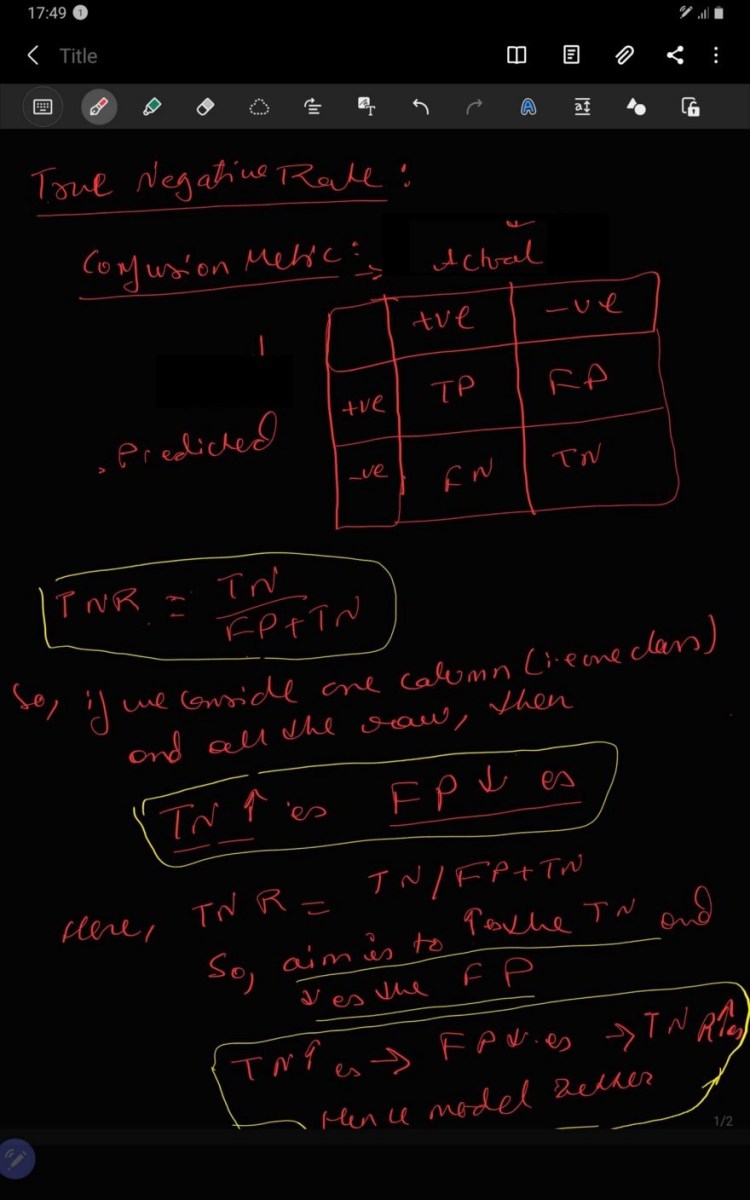 17:49 1
Title
True Negative Rate :
Confusion Metric : → Actual
+ve -ve
+ve TP FP
Predicted
-ve FN TN
TNR = TN / FP+TN
So, if we conside one column (i.e one class)
and all the raw, then
TN ↑ es FP ↓ es
Here, TNR = TN/FP+TN
So, aim is to ↑es the TN and
↓ es the FP
TN↑ es → FP↓.es → TNR↑es
Hence model better
1/2